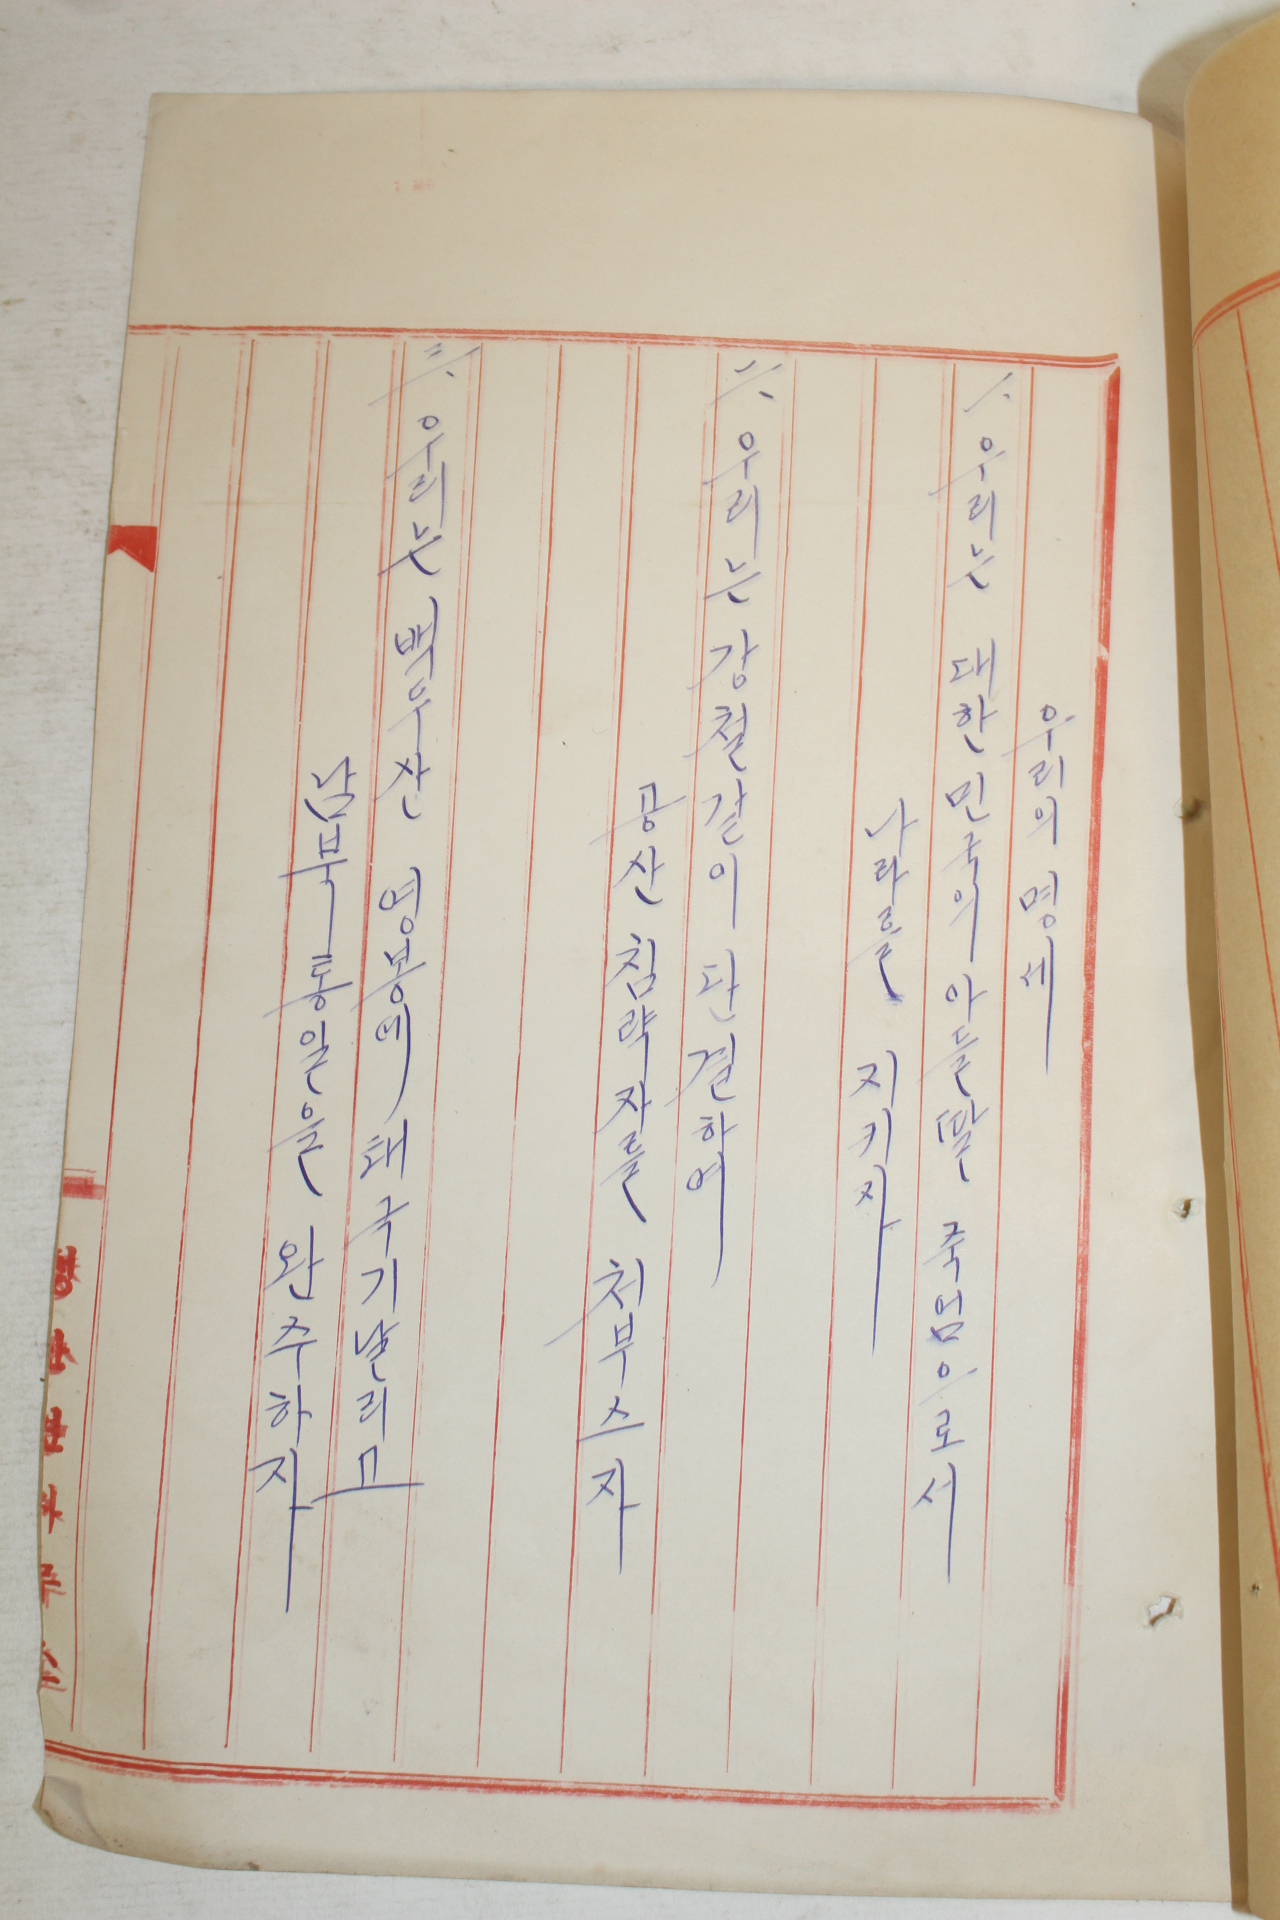 우리의 명세
一、우리는 대한민국의 아들딸 죽엄으로서
나라를 지키자
二、우리는 강철같이 단결하여
공산 침략자를 처부스자
三、우리는 백두산 영봉에 태국기날리고
남북통일을 완수하자